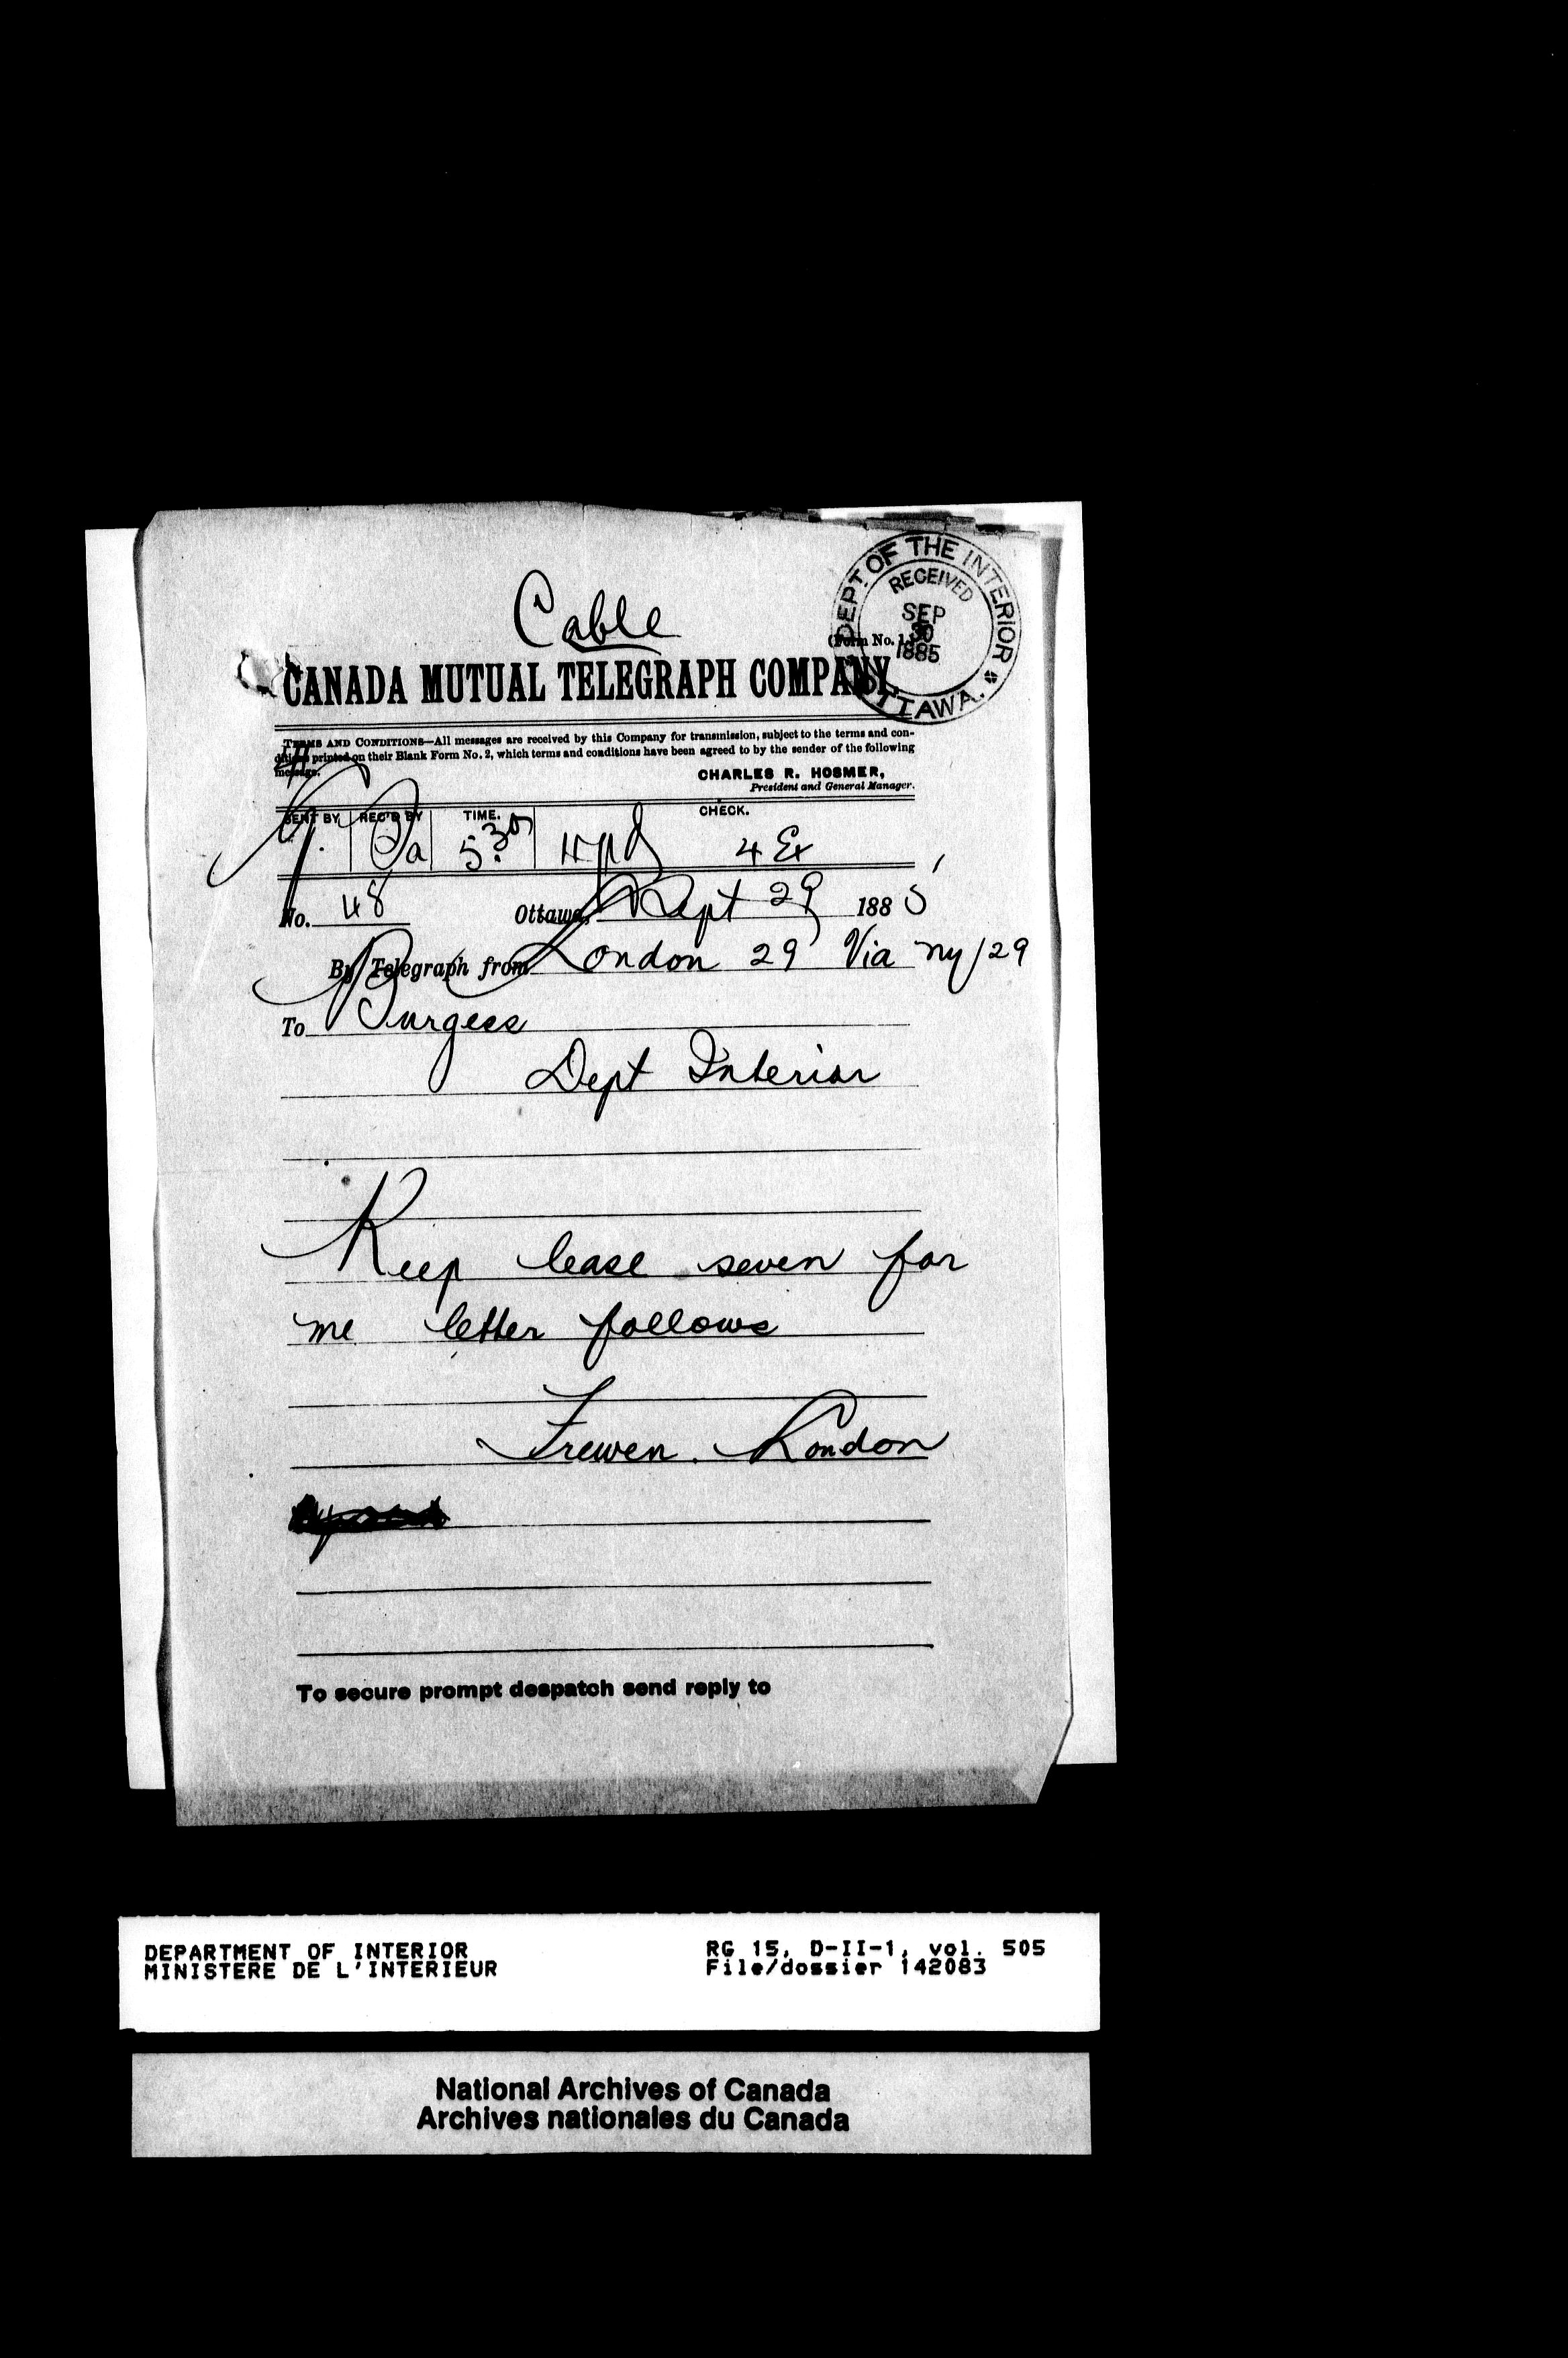 Cable
DEPT. OF THE INTERIOR
RECEIVED
SEP
30
1885
OTTAWA.
(Form No. 1.)
CANADA MUTUAL TELEGRAPH COMPANY.
TERMS AND CONDITIONS—All messages are received by this Company for transmission, subject to the terms and con-
ditions printed on their Blank Form No. 2, which terms and conditions have been agreed to by the sender of the following
message.
CHARLES R. HOSMER,
President and General Manager.
SENT BY REC'D BY TIME. CHECK.
5.30 4 Ex
No. 48 Ottawa, Sept 29 1885
By Telegraph from London 29 Via ny/29
To Burgess
Dept Interior
Keep lease seven for
me letter follows
Frewen. London
To secure prompt despatch send reply to
DEPARTMENT OF INTERIOR RG 15, D-II-1, vol. 505
MINISTERE DE L'INTERIEUR File/dossier 142083
National Archives of Canada
Archives nationales du Canada